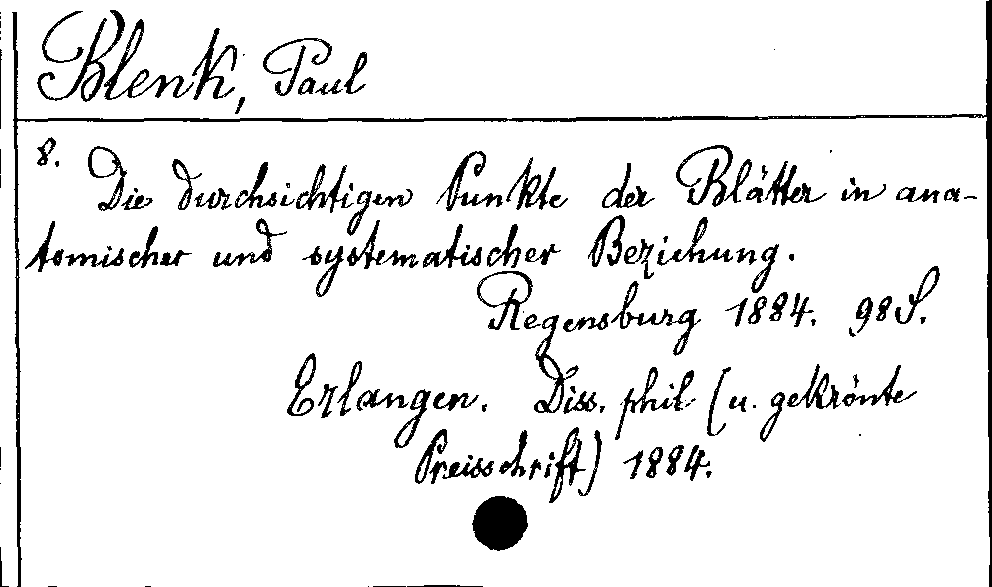 Blenk, Paul
8. Die durchsichtigen Punkte der Blätter in ana-
tomischer und systematischer Beziehung.
Regensburg 1884. 98 S.
Erlangen. Diss. phil (u. gekrönte
Preisschrift) 1884.